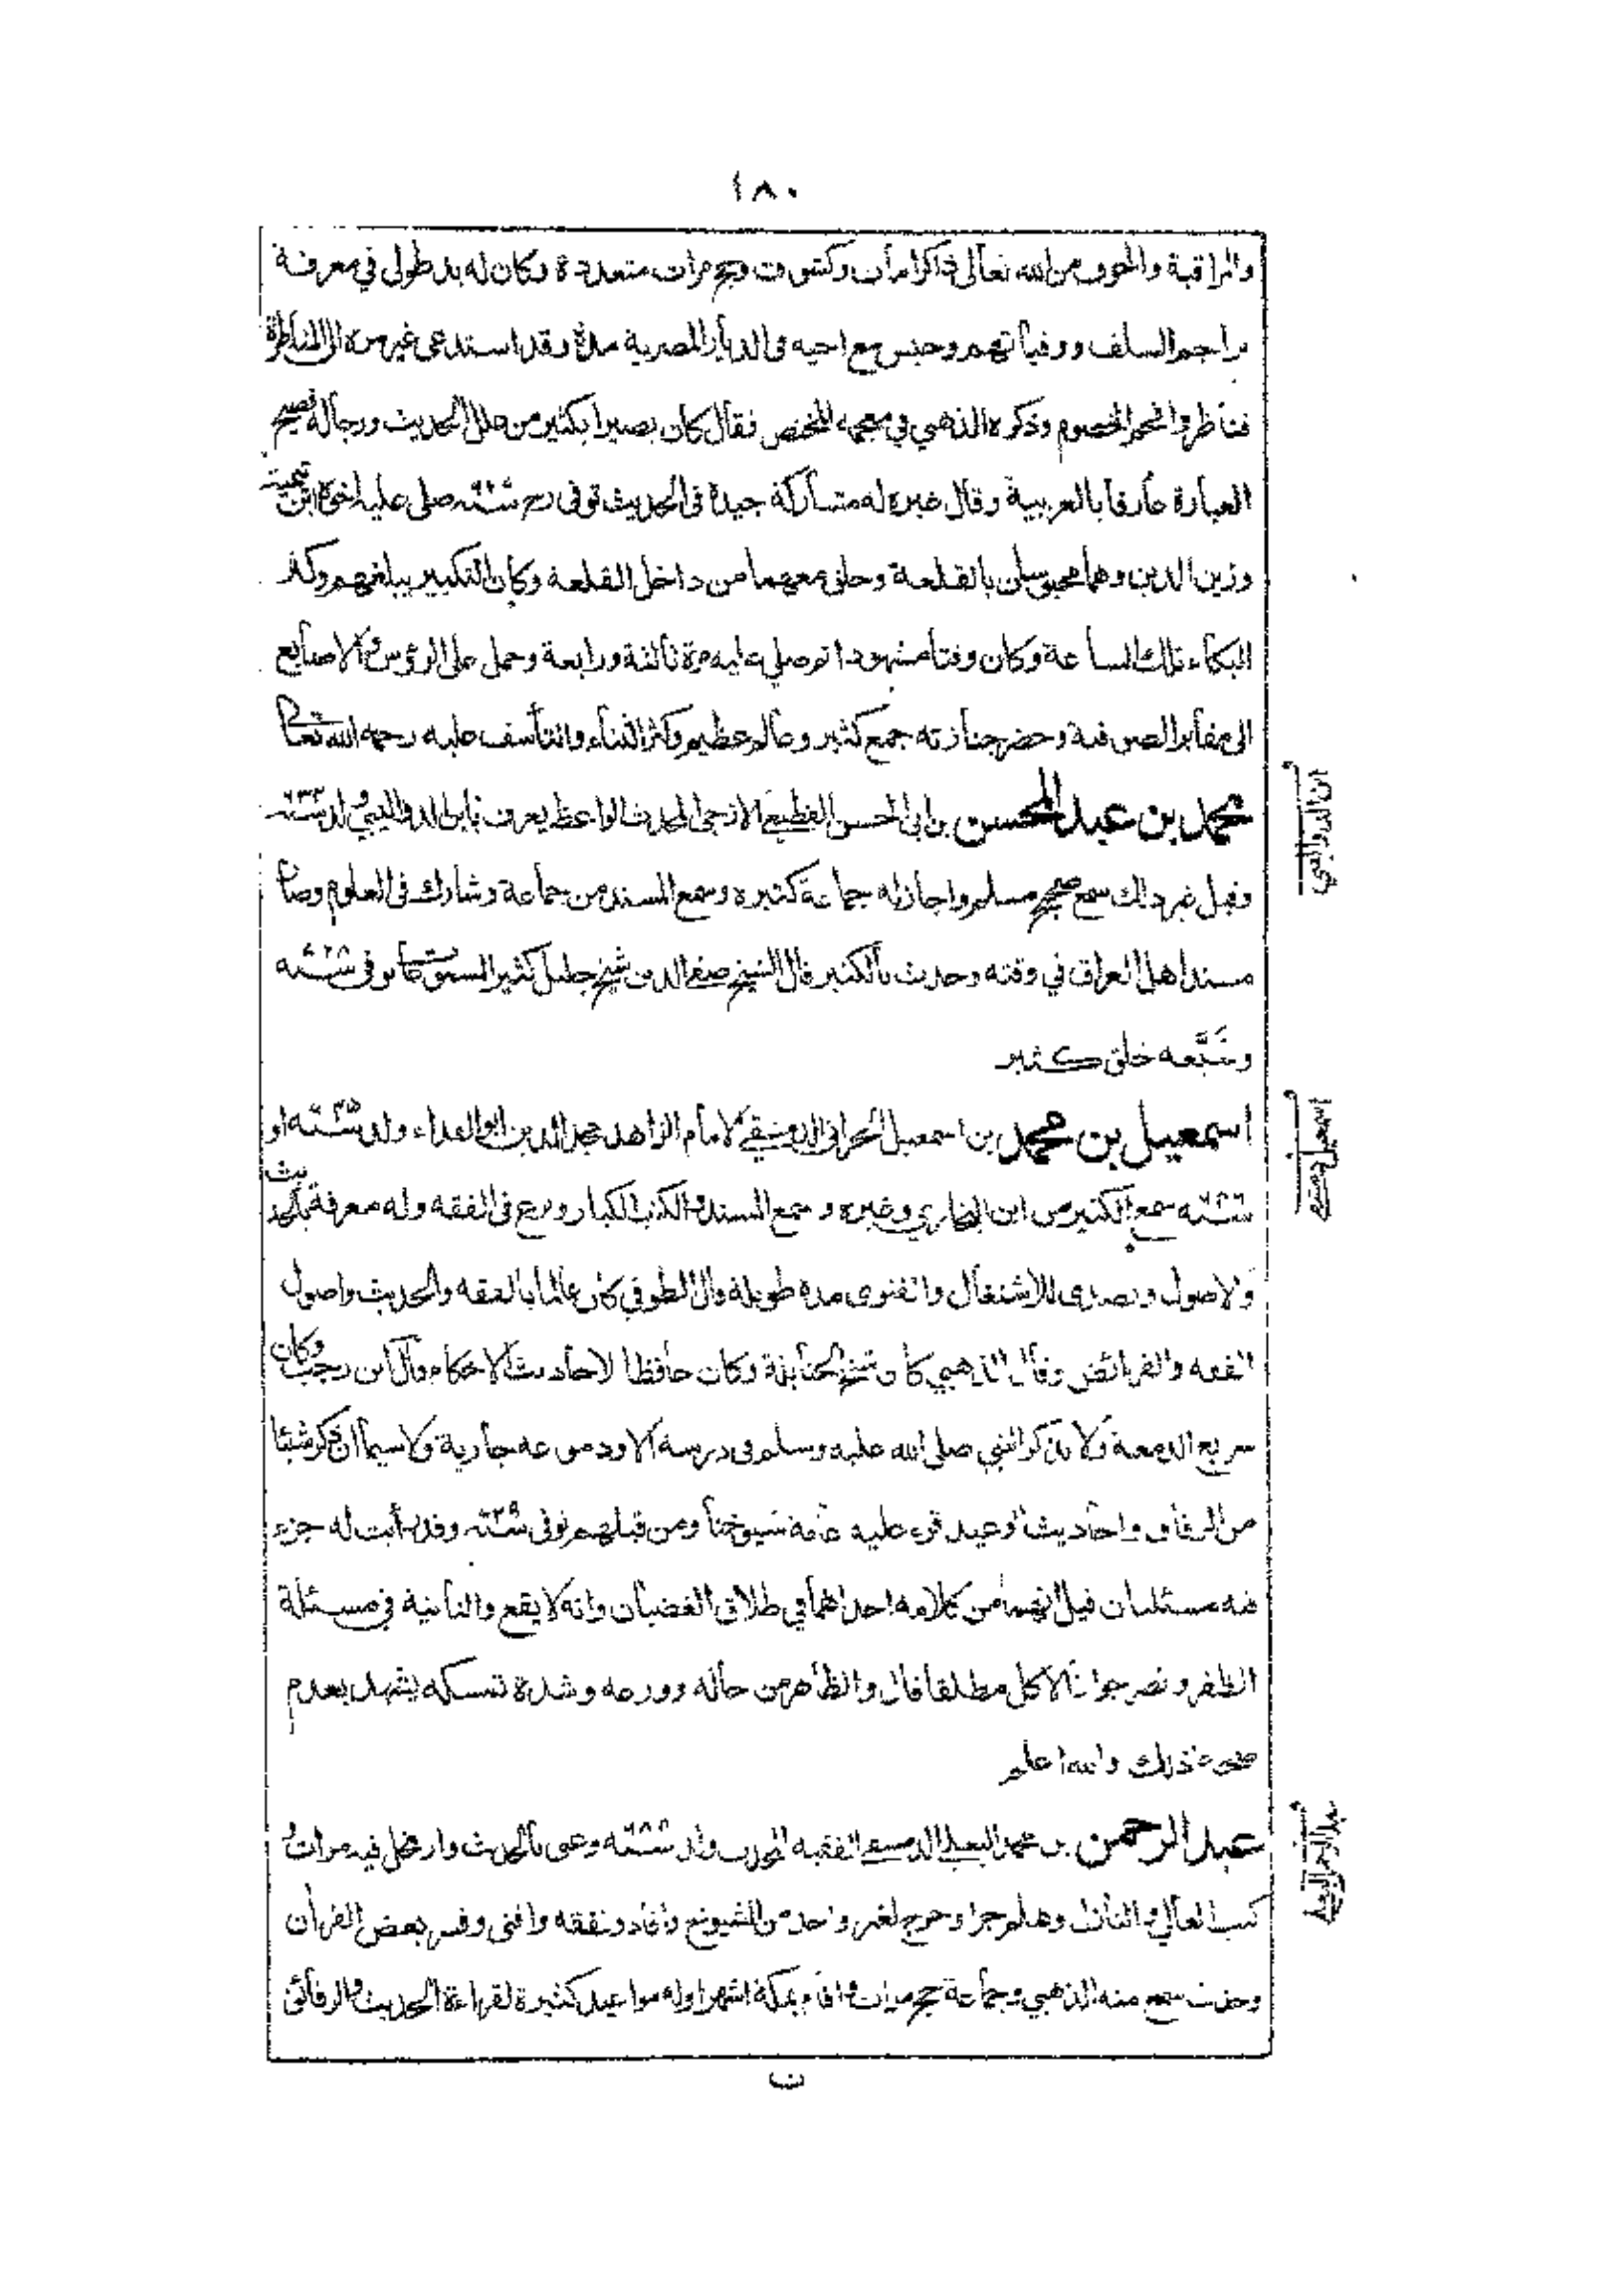 ١٨٠
والمراقبة والخوف من الله تعالى ذا كرامات وكشوفات وحج مرات متعددة وكان له يد طولى في معرفة
تراجم السلف ووفياتهم وحبس مع اخيه فى الديار المصرية مدة وقد استدعى غير مرة الى المناظرة
فناظر وافحم الخصوم وذكره الذهبي في معجمه المختص فقال كان بصيرا بكثير من علل الحديث ورجاله فصيح
العبارة عارفا بالعربية وقال غيره له مشاركة جيدة فى الحديث توفى رح صلى عليه اخوه ابن تيمية
وزين الدين وهما محبوسان بالقلعة وخلق معهما من داخل القلعة وكان التكبير يبلغهم وكثر
البكاء تلك الساعة وكان وقتا مشهودا ثم صلي عليه مرة ثالثة ورابعة وحمل على الرؤس والاصابع
الى مقابر الصوفية وحضر جنازته جمع كثير وعالم عظيم وكثر الثناء والتأسف عليه رحمه الله تعالى
محمد بن عبد المحسن بن ابى الحسن القطيعي الازجى المحدث الواعظ يعرف بابن الدواليبي ولد سنة ٦٣٤
وقيل غير ذلك سمع صحيح مسلم واجاز له جماعة كثيره وسمع المسند من جماعة وشارك فى العلوم وصار
مسند اهل العراق في وقته وحدث بالكثير قال الشيخ صفي الدين شيخ جليل كثير المسموعات توفى سنة ٧٢٨
وشيّعه خلق كثير
اسمعيل بن محمد بن اسمعيل الحرانى الدمشقي الامام الزاهد مجد الدين ابو الفداء ولد سنة ٦٤٥ او
سنة ٦٤٦ سمع الكثير من ابن البخاري وغيره وسمع المسند والكتب الكبار وبرع فى الفقه وله معرفة بالحديث
والاصول وتصدى للاشتغال والفتوى مدة طويلة قال الطوفي كان عالما بالفقه والحديث واصول
الفقه والفرائض وقال الذهبي كان شيخ الحنابلة وكان حافظا لاحاديث الاحكام وقال ابن رجب وكان
سريع الدمعة ولا يذكر النبي صلى الله عليه وسلم فى درسه الا ودموعه جارية ولا سيما ان ذكر شيئا
من الرقاق واحاديث الوعيد قرء عليه عامة شيوخنا ومن قبلهم توفى سنة ٧٢٩ وقد رأيت له جزء
فيه مسئلتان قيل انهما من كلامه احداهما في طلاق الغضبان وانه لا يقع والثانية في مسئلة
الظفر ونصر جواز الاكل مطلقا قال والظاهر من حاله وورعه وشدة تمسكه يشهد بعدم
صحة ذلك والله اعلم
عبد الرحمن بن محمد البعلي الدمشقي الفقيه المحدث ولد سنة ٦٨٥ وعنى بالحديث وارتحل فيه مرات و
كتب العالي والنازل وهلم جرا وخرج لغير واحد من الشيوخ وافاد وتفقه وافتى وفسر بعض القرآن
وحدث سمع منه الذهبي وجماعة حج مرات واقام بمكة اشهرا وله مواعيد كثيرة لقراءة الحديث والرقائق
ابن الدواليبي
اسمعيل دمشقي
عبد الرحمن البعلي